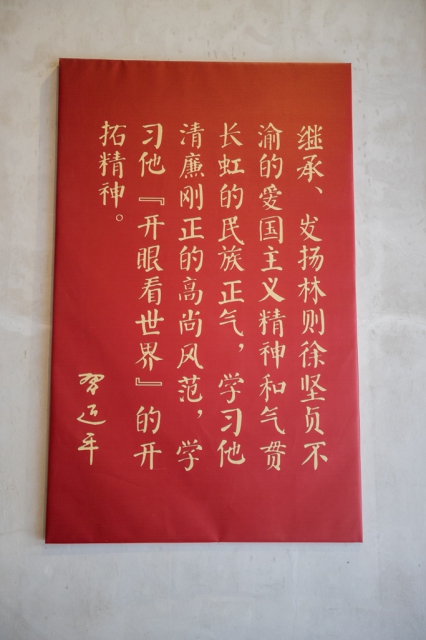 继承、发扬林则徐坚贞不
渝的爱国主义精神和气贯
长虹的民族正气，学习他
清廉刚正的高尚风范，学
习他『开眼看世界』的开
拓精神。
习近平